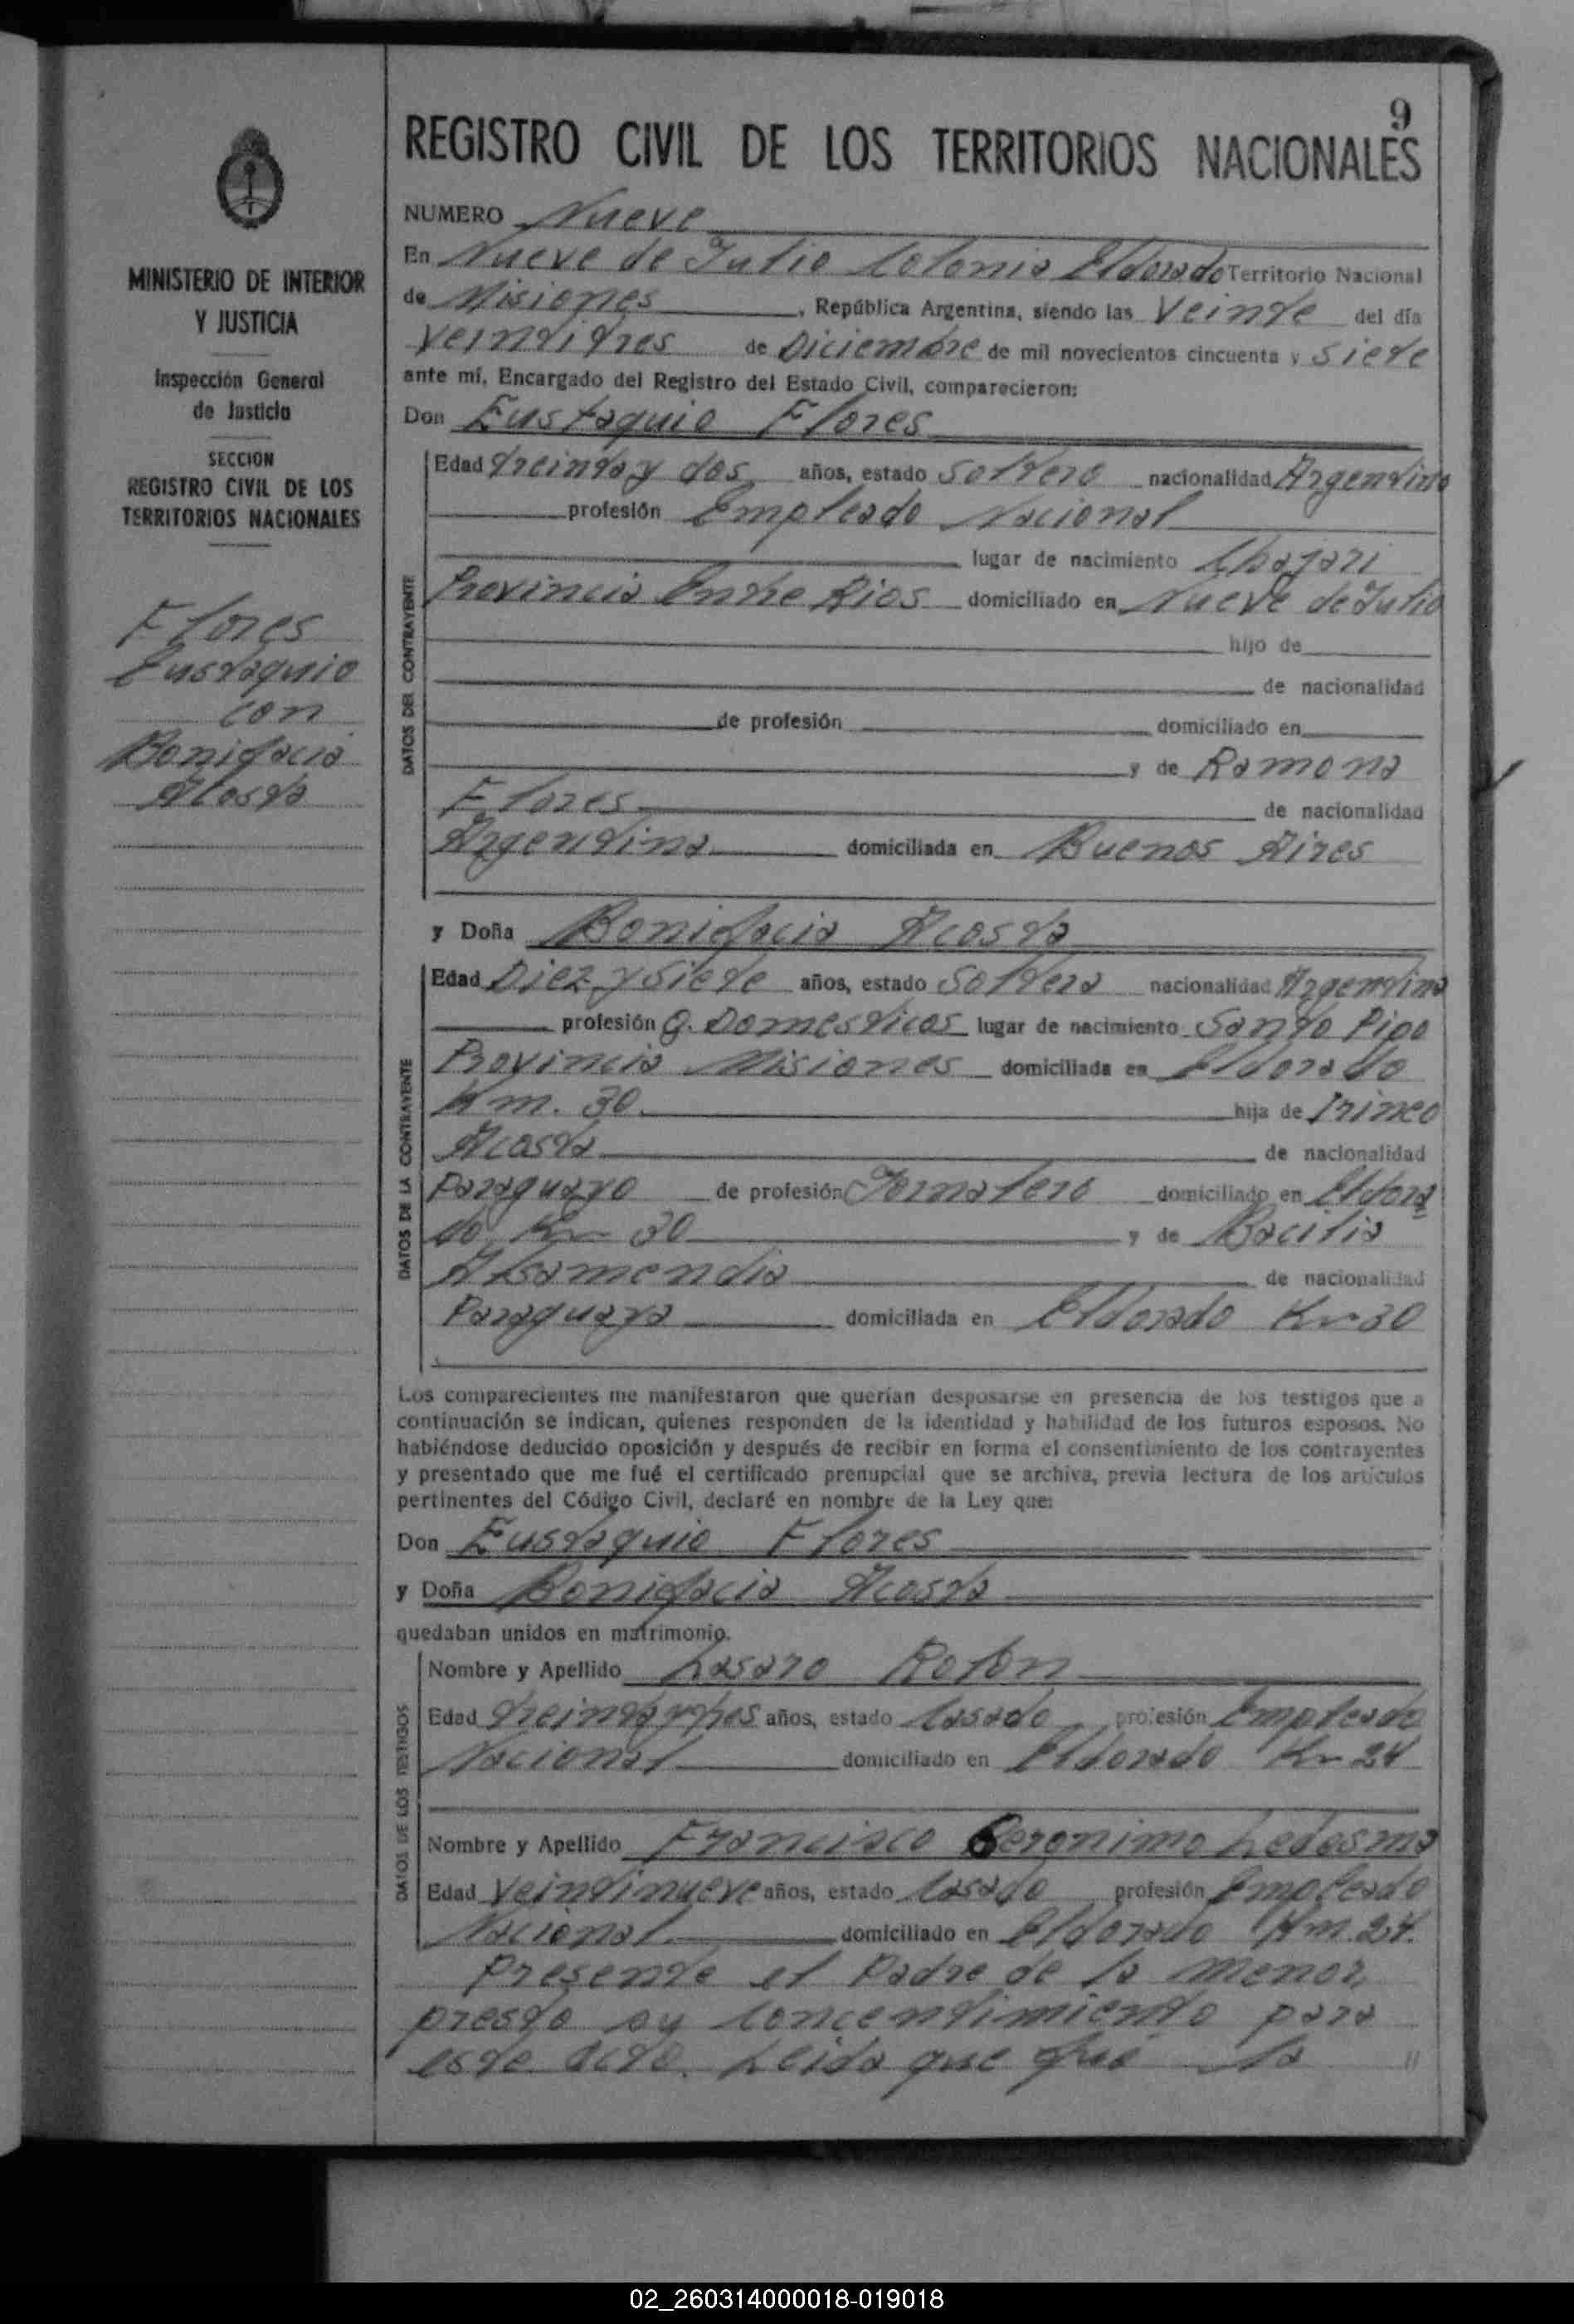 9
REGISTRO CIVIL DE LOS TERRITORIOS NACIONALES
MINISTERIO DE INTERIOR
Y JUSTICIA
Inspección General
de Justicia
SECCION
REGISTRO CIVIL DE LOS
TERRITORIOS NACIONALES
Flores
Eustaquio
con
Bonifacia
Acosta
NUMERO Nueve
En Nueve de Julio Colonia Eldorado Territorio Nacional
de Misiones, República Argentina, siendo las Veinte del día
veintitres de Diciembre de mil novecientos cincuenta y siete
ante mí, Encargado del Registro del Estado Civil, comparecieron:
Don Eustaquio Flores
DATOS DEL CONTRAYENTE
Edad treinta y dos años, estado Soltero nacionalidad Argentino
profesión Empleado Nacional
lugar de nacimiento Chajari
Provincia Entre Rios domiciliado en Nueve de Julio
hijo de
de nacionalidad
de profesión domiciliado en
y de Ramona
Flores de nacionalidad
Argentina domiciliada en Buenos Aires
y Doña Bonifacia Acosta
DATOS DE LA CONTRAYENTE
Edad Diez y Siete años, estado Soltera nacionalidad Argentina
profesión Q. Domesticos lugar de nacimiento Santo Pipo
Provincia Misiones domiciliada en Eldorado
Km. 30 hija de Irineo
Acosta de nacionalidad
Paraguayo de profesión Jornalero domiciliado en Eldora
do, Km 30 y de Bacilia
Alsamendia de nacionalidad
Paraguaya domiciliada en Eldorado Km 30
Los comparecientes me manifestaron que querían desposarse en presencia de los testigos que a
continuación se indican, quienes responden de la identidad y habilidad de los futuros esposos. No
habiéndose deducido oposición y después de recibir en forma el consentimiento de los contrayentes
y presentado que me fué el certificado prenupcial que se archiva, previa lectura de los artículos
pertinentes del Código Civil, declaré en nombre de la Ley que:
Don Eustaquio Flores
y Doña Bonifacia Acosta
quedaban unidos en matrimonio.
DATOS DE LOS TESTIGOS
Nombre y Apellido Lasaro Rolon
Edad treinta y tres años, estado Casado profesión Empleado
Nacional domiciliado en Eldorado Km 24
Nombre y Apellido Francisco Geronimo Ledesma
Edad Veintinueve años, estado Casado profesión Empleado
Nacional domiciliado en Eldorado Km. 24.
Presente el Padre de la menor,
presto su Concentimiento para
este acto. Leida que fue la //
02_260314000018-019018